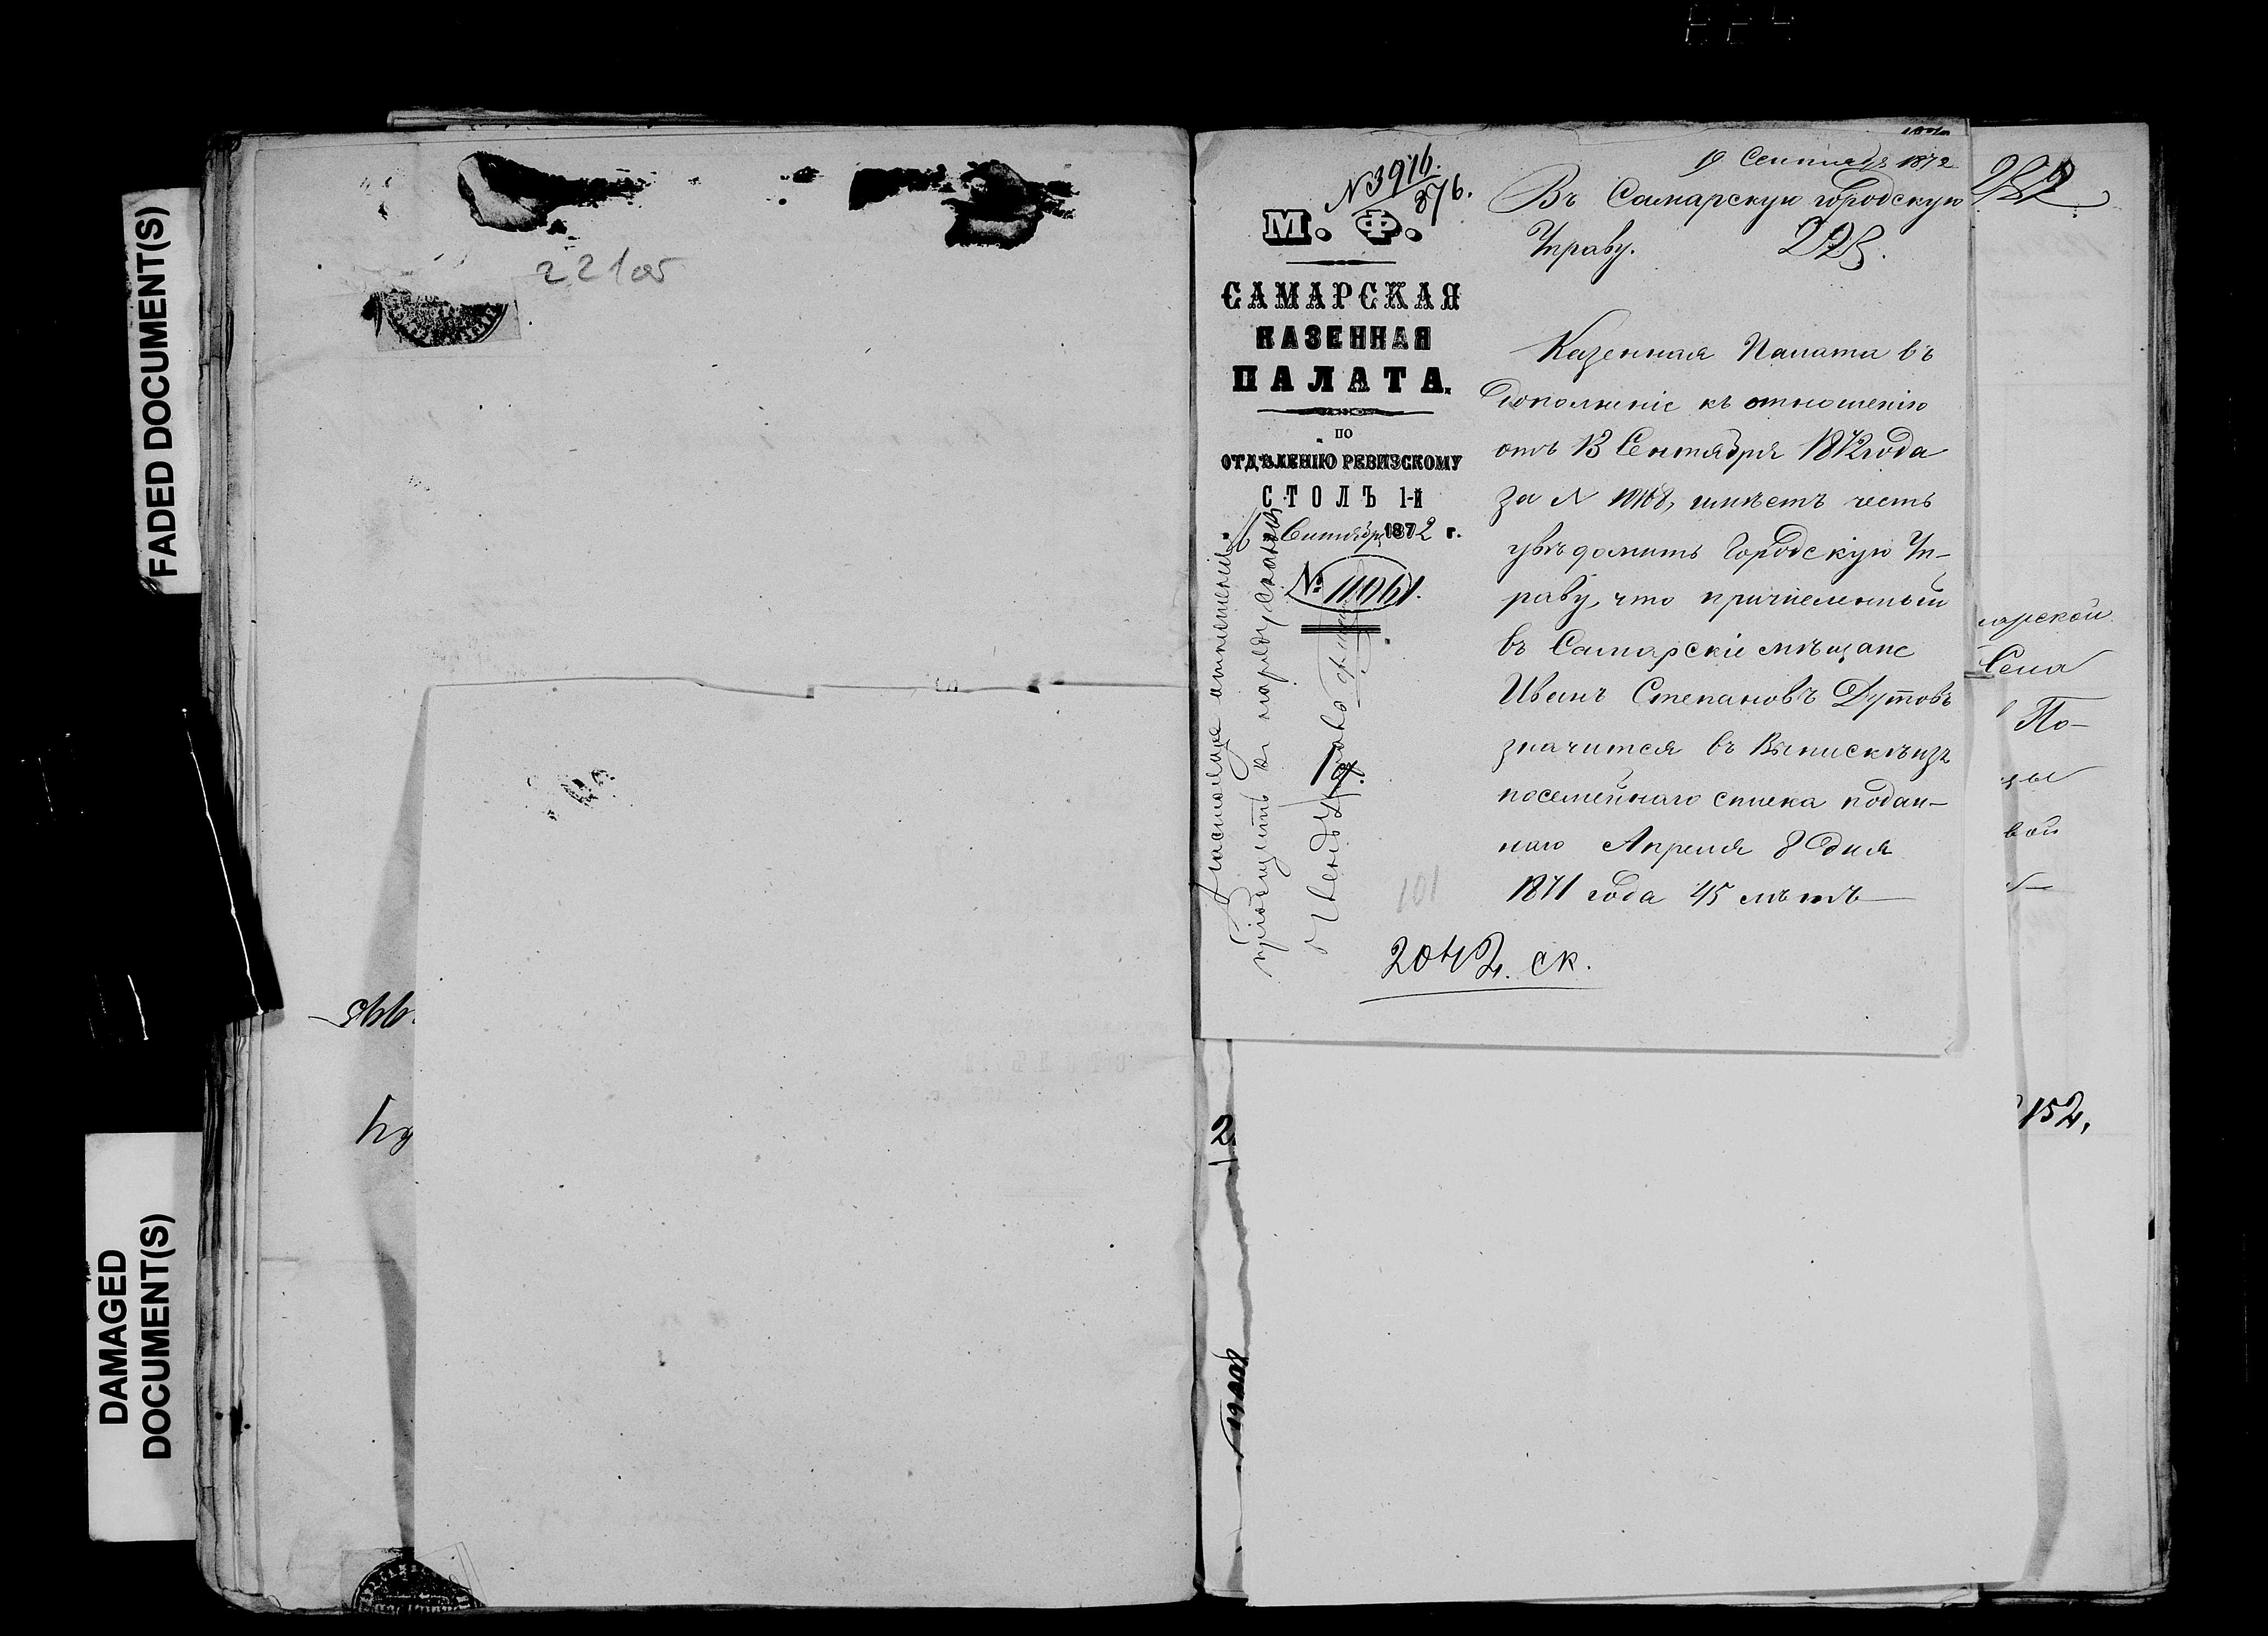 FADED DOCUMENT(S)
DAMAGED
DOCUMENT(S)
22105
№ 3916.
376.
М. Ф.
САМАРСКАЯ
КАЗЕННАЯ
ПАЛАТА.
ПО
ОТДѢЛЕНІЮ РЕВИЗСКОМУ
СТОЛЪ 1-й
Сентября 1872 г.
№ 11061.
19 Сентября 1872
Въ Самарскую городскую
Управу.
228.
Казенная Палата въ
дополненіе къ отношенію
отъ 13 Сентября 1872 года
за №, имѣетъ честь
увѣдомить Городскую Уп-
раву, что причисленный
въ Самарскіе мѣщане
Иванъ Степановъ Дутовъ
значится въ выпискѣ изъ
посемейнаго списка подан-
наго Апреля 8 дня
1871 года 45 лѣтъ
101
2042. ск.
Настоящее отношеніе
пріобщить къ наряду
229
марской
Села
По-
вой
152.
2